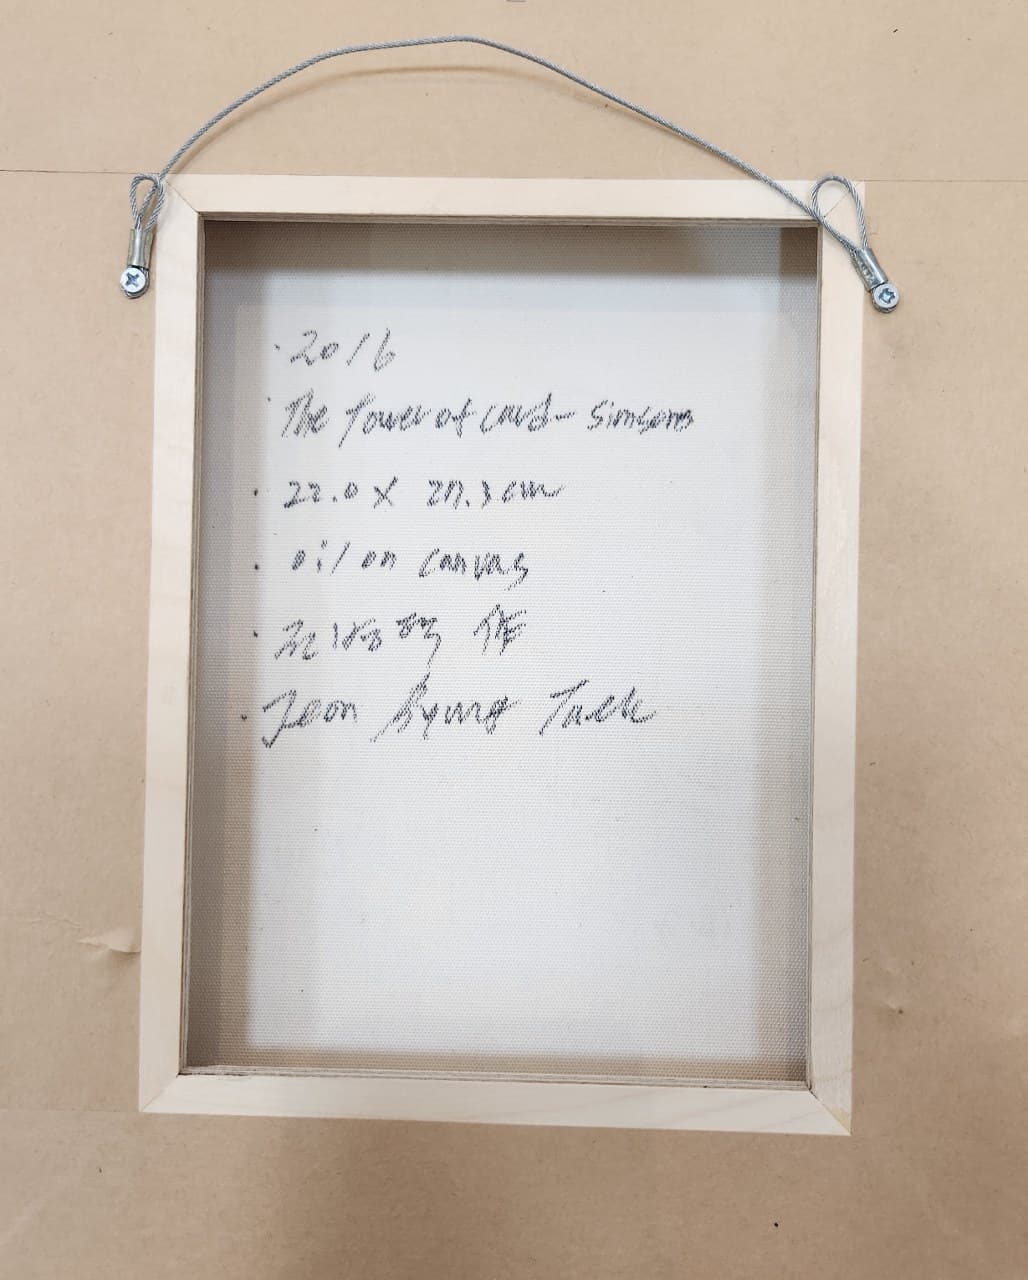 · 2016
· The Tower of card - Simsons
· 22.0 X 27.3 cm
· oil on canvas
· 전병택 作
· Jeon Byung Taek